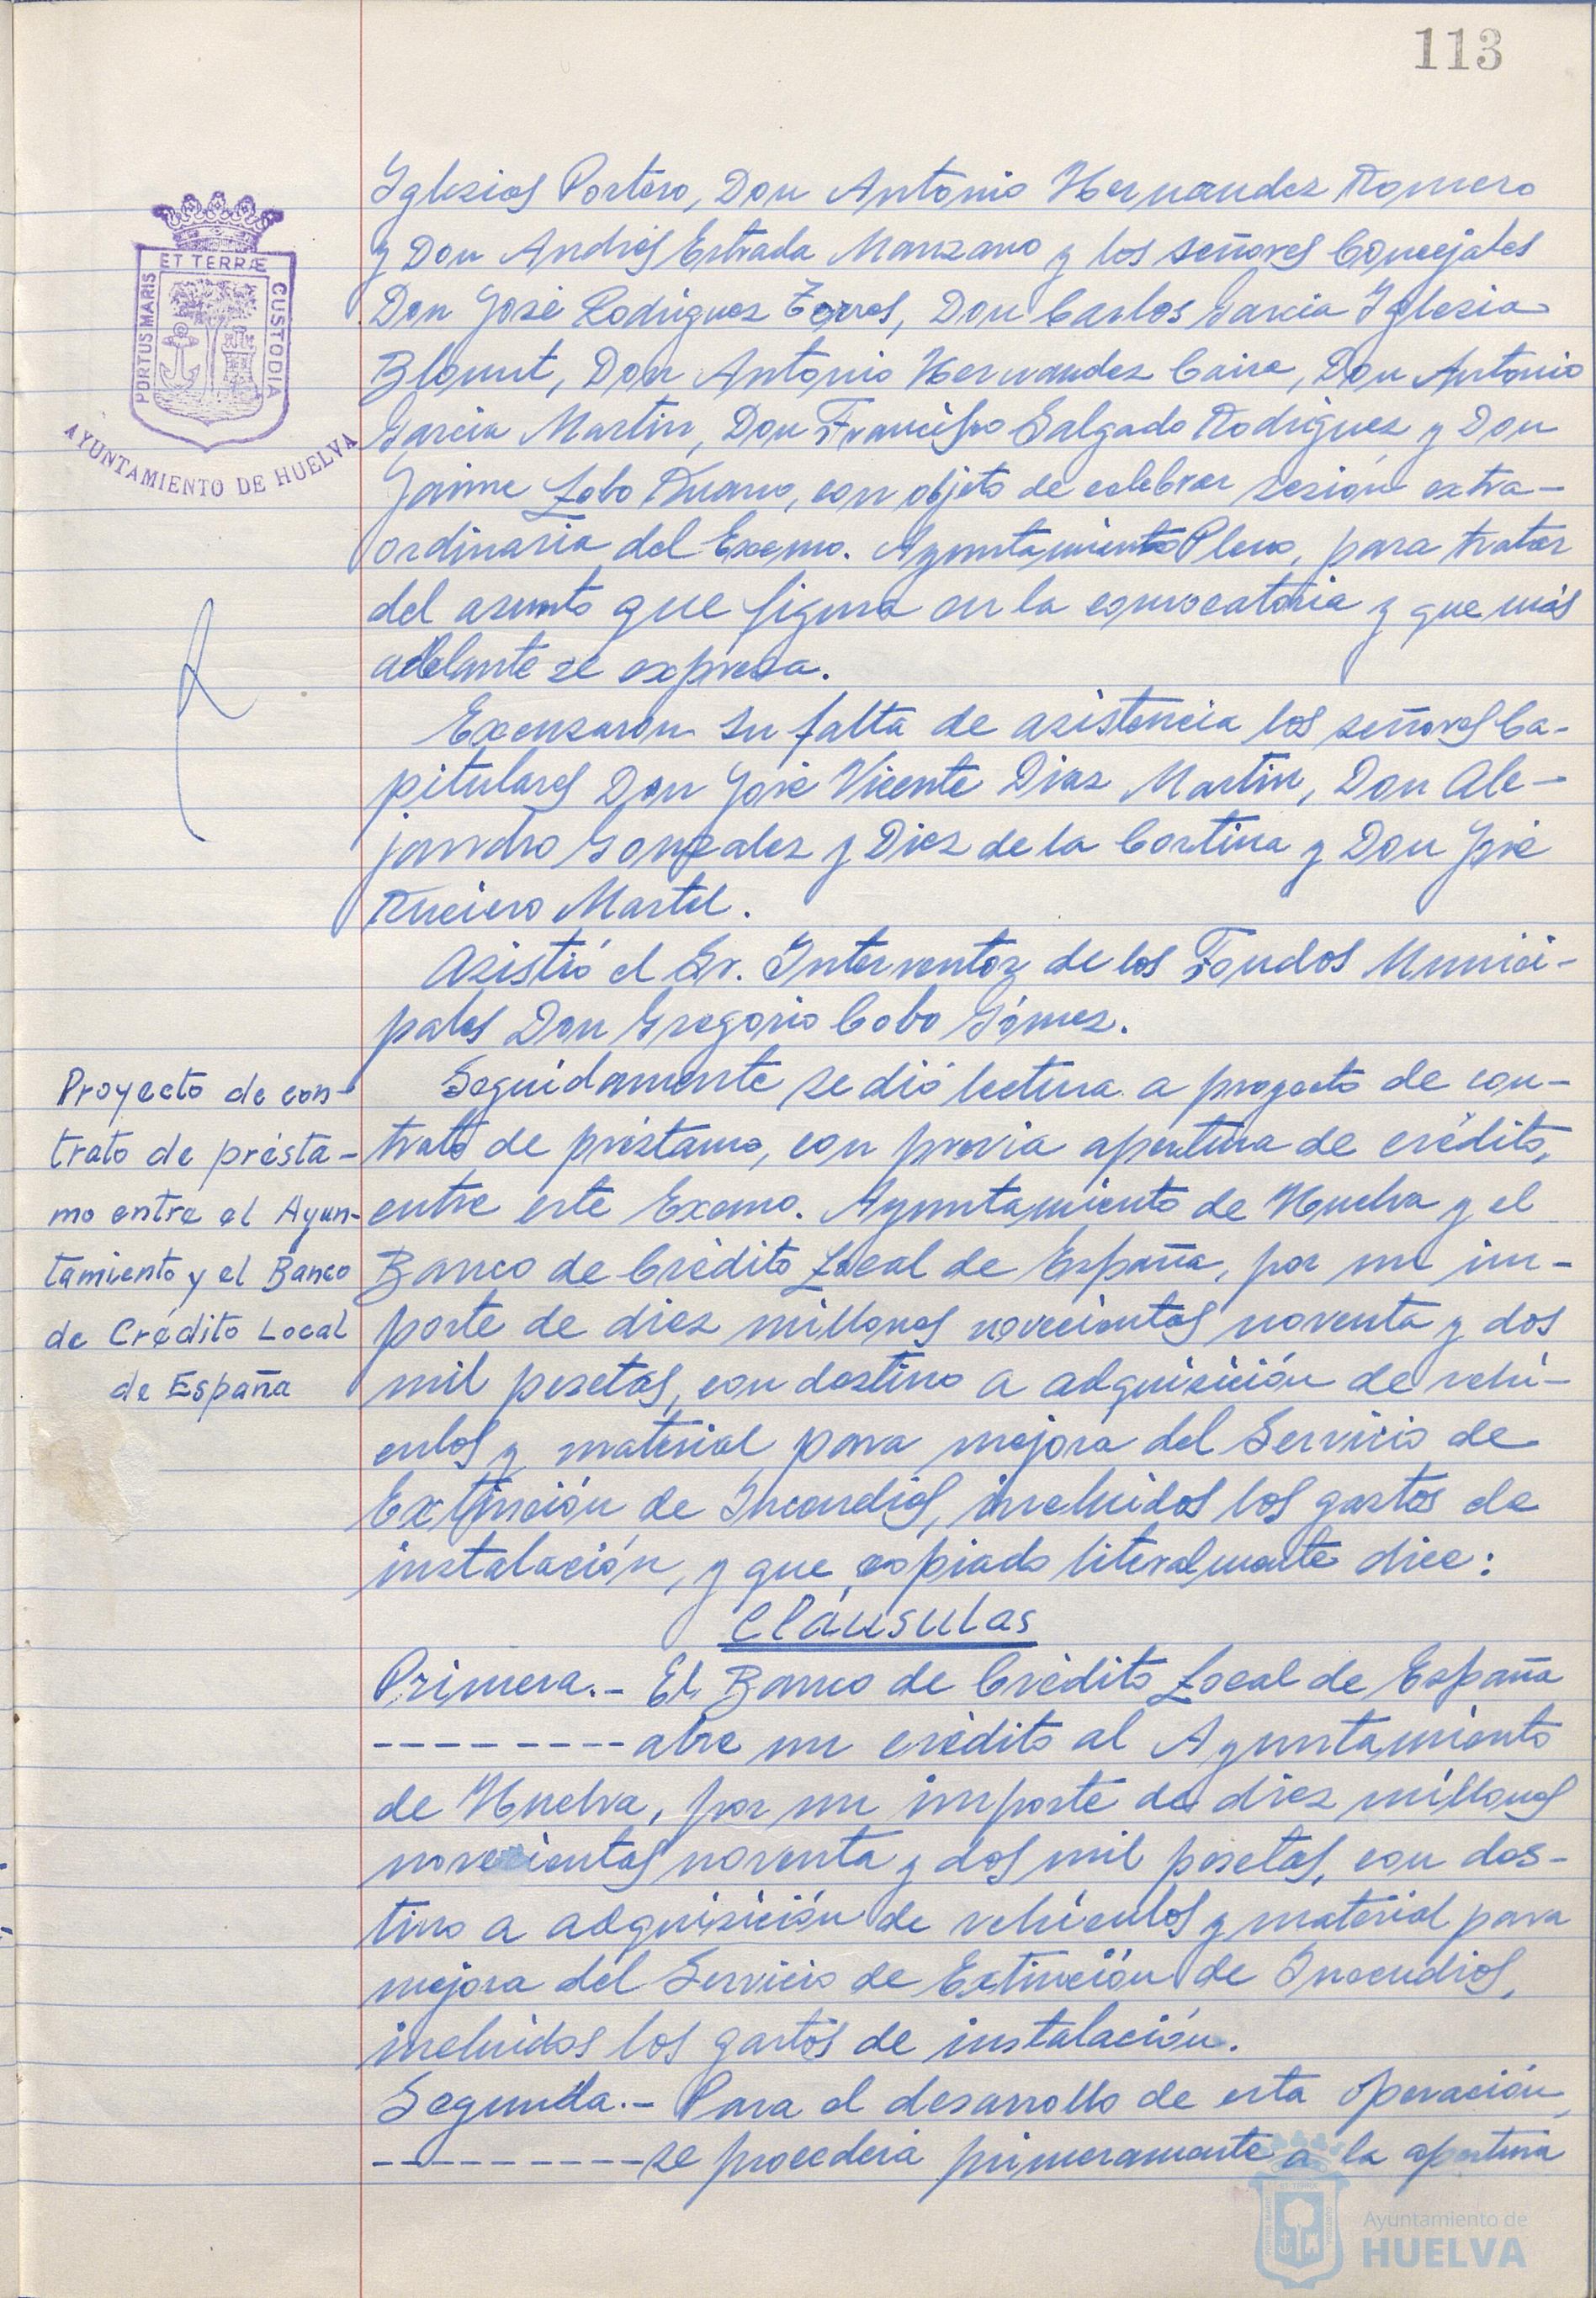 113
ET TERRÆ
PORTUS MARIS
CUSTODIA
AYUNTAMIENTO DE HUELVA
Iglesias Portero, Don Antonio Hernandez Romero
y Don Andrés Estrada Manzano y los señores Concejales
Don José Rodriguez Torres, Don Carlos Garcia Iglesia
Blount, Don Antonio Hernandez Caire, Don Antonio
Garcia Martin, Don Francisco Salgado Rodriguez y Don
Jaime Lobo Ruano, con objeto de celebrar sesión extra-
ordinaria del Excmo. Ayuntamiento Pleno, para tratar
del asunto que figura en la convocatoria y que más
adelante se expresa.
Excusaron su falta de asistencia los señores Ca-
pitulares Don José Vicente Diaz Martin, Don Ale-
jandro Gonzalez y Diez de la Cortina y Don José
Ruciero Martel.
Asistió el Sr. Interventor de los Fondos Munici-
pales Don Gregorio Cobo Gómez.
Proyecto de con-
trato de présta-
mo entre el Ayun-
tamiento y el Banco
de Crédito Local
de España
Seguidamente se dió lectura a proyecto de con-
trato de préstamo, con previa apertura de crédito,
entre este Excmo. Ayuntamiento de Huelva y el
Banco de Crédito Local de España, por un im-
porte de diez millones novecientas noventa y dos
mil pesetas, con destino a adquisición de vehí-
culos y material para mejora del Servicio de
Extinción de Incendios, incluidos los gastos de
instalación, y que copiado literalmente dice:
Cláusulas
Primera.- El Banco de Crédito Local de España
--------- abre un crédito al Ayuntamiento
de Huelva, por un importe de diez millones
novecientas noventa y dos mil pesetas, con des-
tino a adquisición de vehículos y material para
mejora del Servicio de Extinción de Incendios,
incluidos los gastos de instalación.
Segunda.- Para el desarrollo de esta operación,
--------- se procederá primeramente a la apertura
Ayuntamiento de
HUELVA